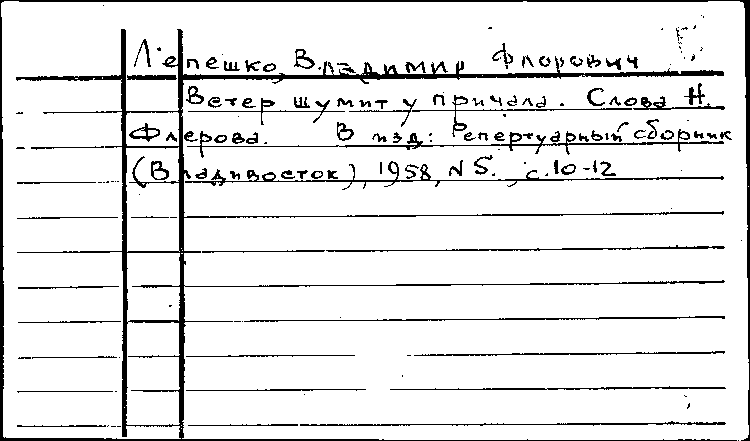 Лепешко, Владимир Флорович
Ветер шумит у причала. Слова Н.
Флерова. В изд: Репертуарный сборник
(Владивосток), 1958, N 5., с.10-12